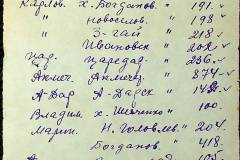 Карлов. х. Богданов. " 191. "
" Новосёлов. " 198 "
" 3-Гай " 218 "
" Ивановск " 202 "
Цар. Царедар. " 236. "
Акмеч. Акмечед. " 874 "
А-Дар А-Дарск " 142. "
Владим. х. Шевченко " 100.
Март. Н. Головлев. " 204.
Богданов. " 418.